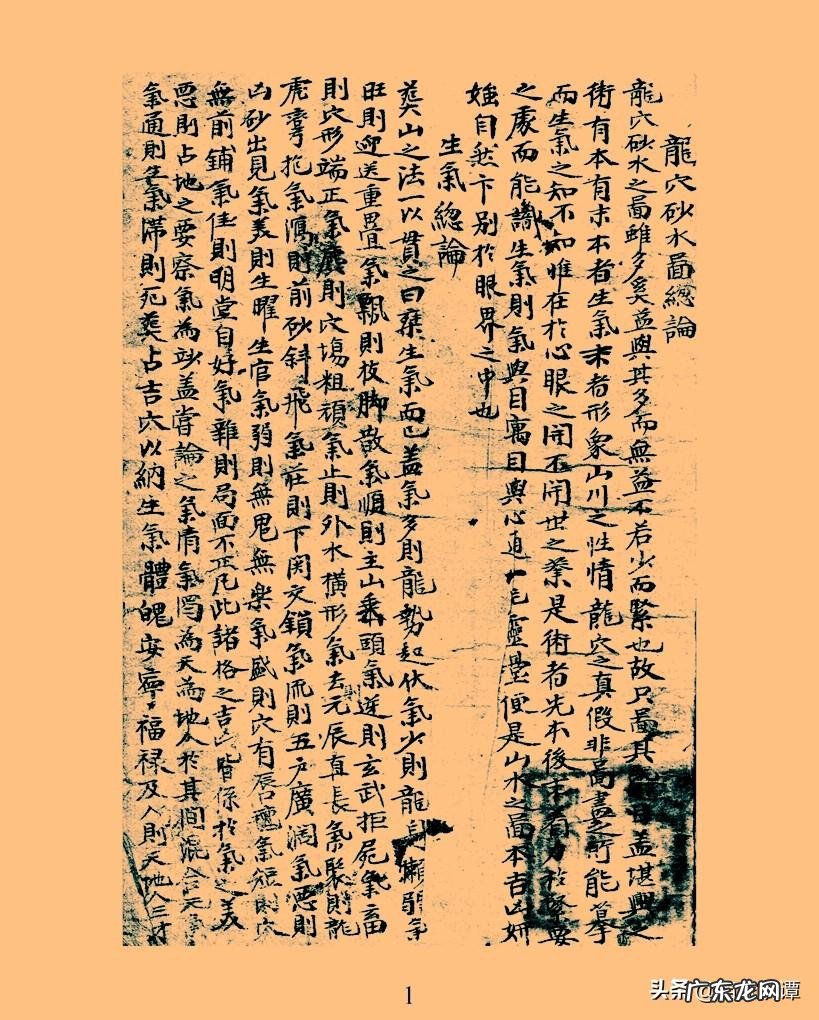 龍穴砂水啚緫論
龍穴砂水之啚雖多奚益與其多而無益不若少而緊也故只啚其盖堪輿之
術有本有末本者生氣末者形象山川之性情龍穴之真假非啚畫之所能摹
而生氣之知不知惟在於心眼之開不開世之業是術者先本後末有力於緊要
之處而能識生氣則氣與目寓目與心通一片靈臺便是山水之啚本吉凶妍
媸自然卞別於眼界之中也
生氣緫論
葬山之法一以貫之曰葬生氣而已盖氣多則龍勢起伏氣少則龍身懶弱氣
旺則迎送重疊氣飄則枝脚散氣順則主山垂頭氣逆則玄武拒屍氣畜
則穴形端正氣殘則穴塲粗頑氣止則外水橫形氣去則元辰直長氣聚則龍
虎彎抱氣瀉則前砂斜飛氣莊則下関交鎖氣流則五戶廣濶氣惡則
凶砂出見氣美則生曜生官氣弱則無鬼無樂氣盛則穴有唇氊氣短則穴
無前鋪氣佳則明堂自好氣雜則局面不正凡此諸格之吉凶皆係於氣之美
惡則占地之要察氣為妙盖嘗論之氣淸氣濁為天為地人於其間混合元
氣通則生氣滯則死葬占吉穴以納生氣體魄安寧福禄及人則天地人三才
1
头条@广东龙网潭